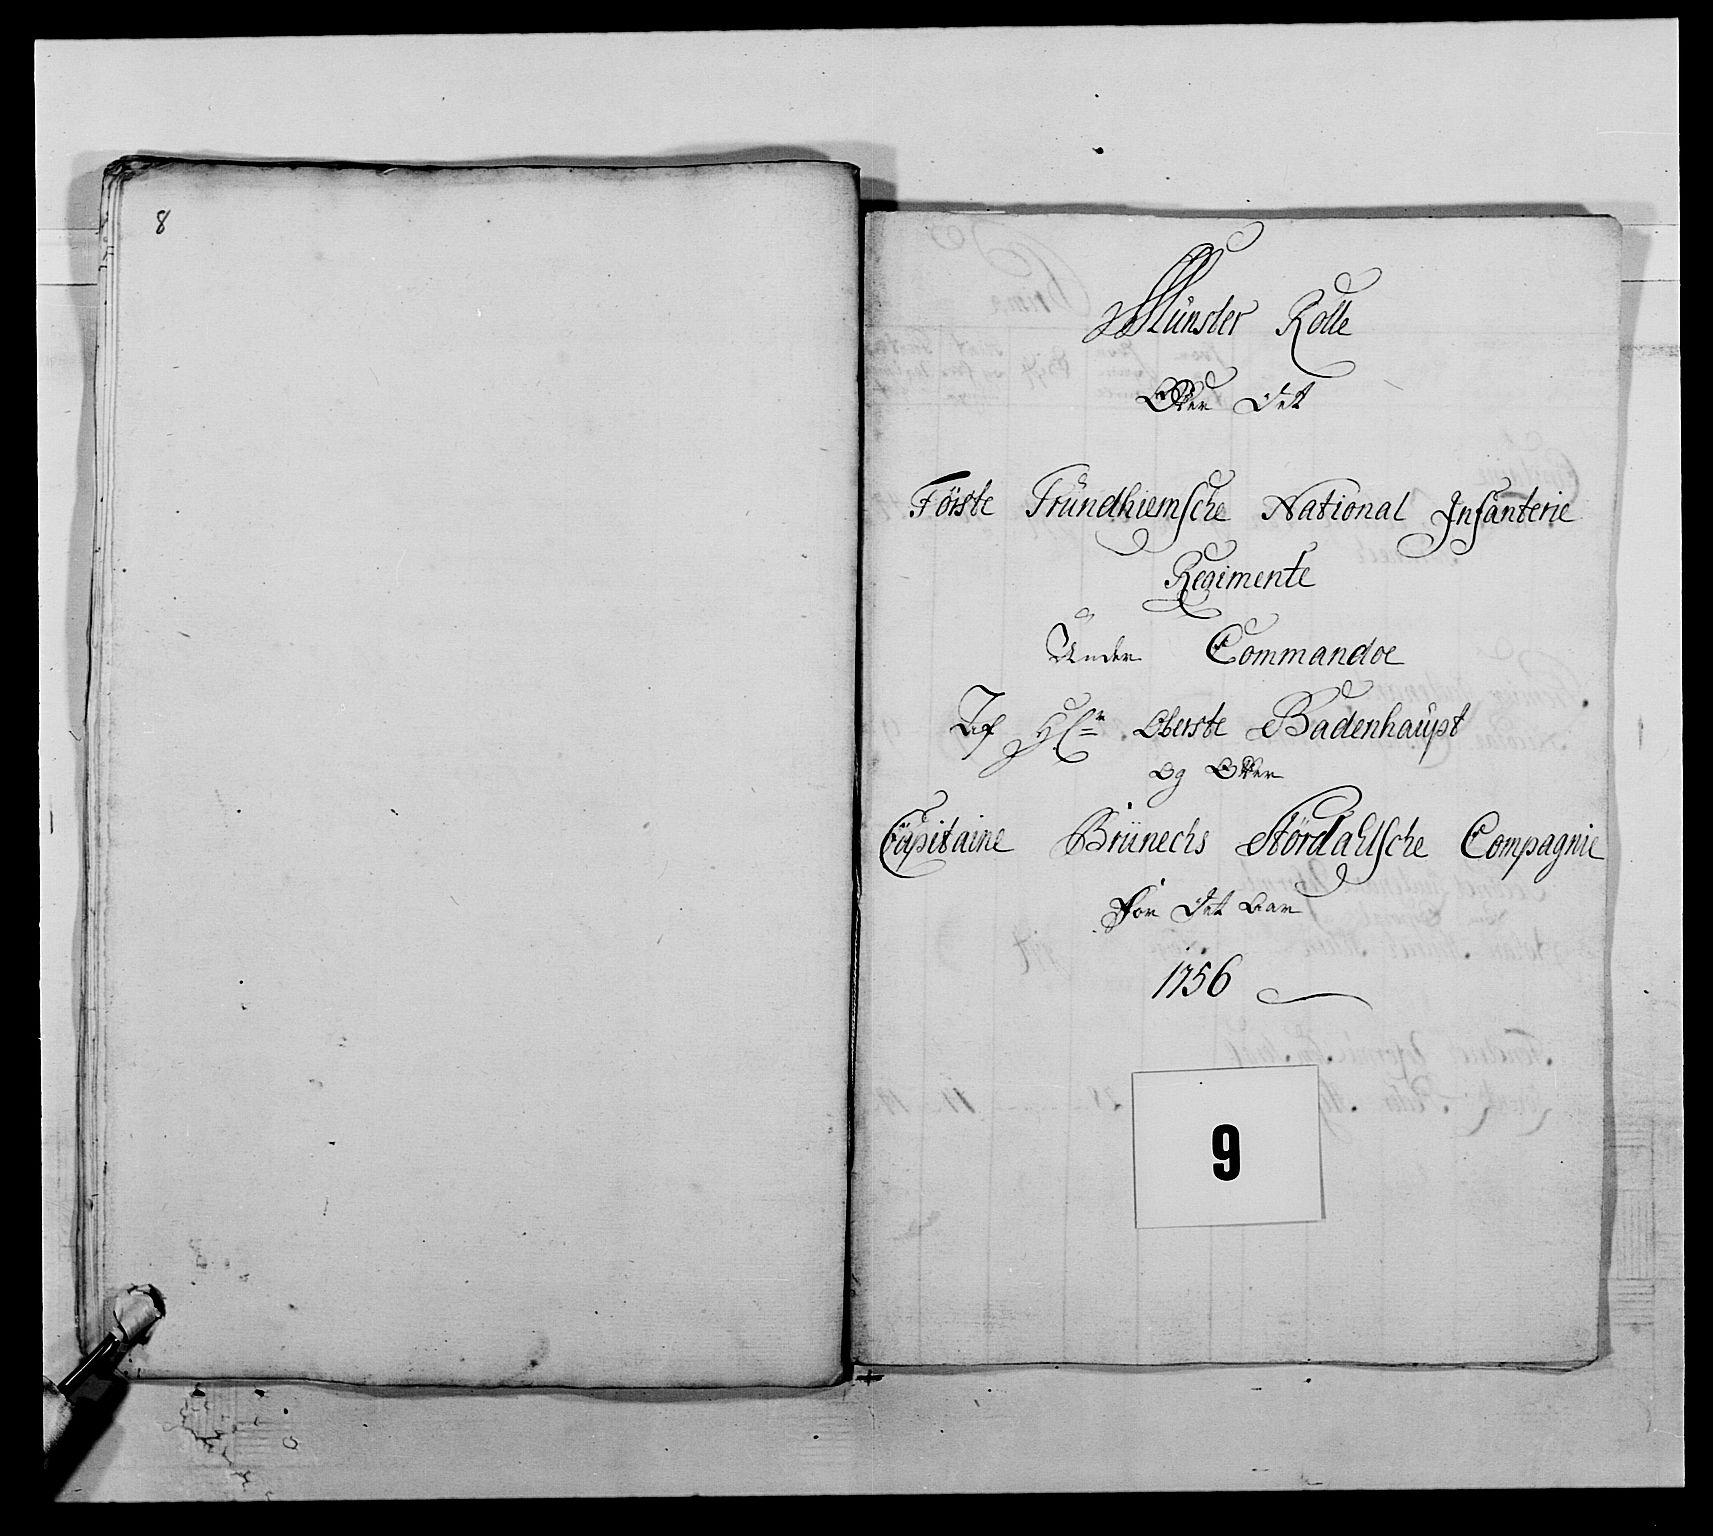 8
Münster Rolle
Over Det
Förste Tründhiemsche National Infanterie
Regimente
Under Commandoe
Af Hr Oberste Badenhaupt
og Over
Capitaine Brünechs Stördahlsche Compagnie
For Det aar
1756
9